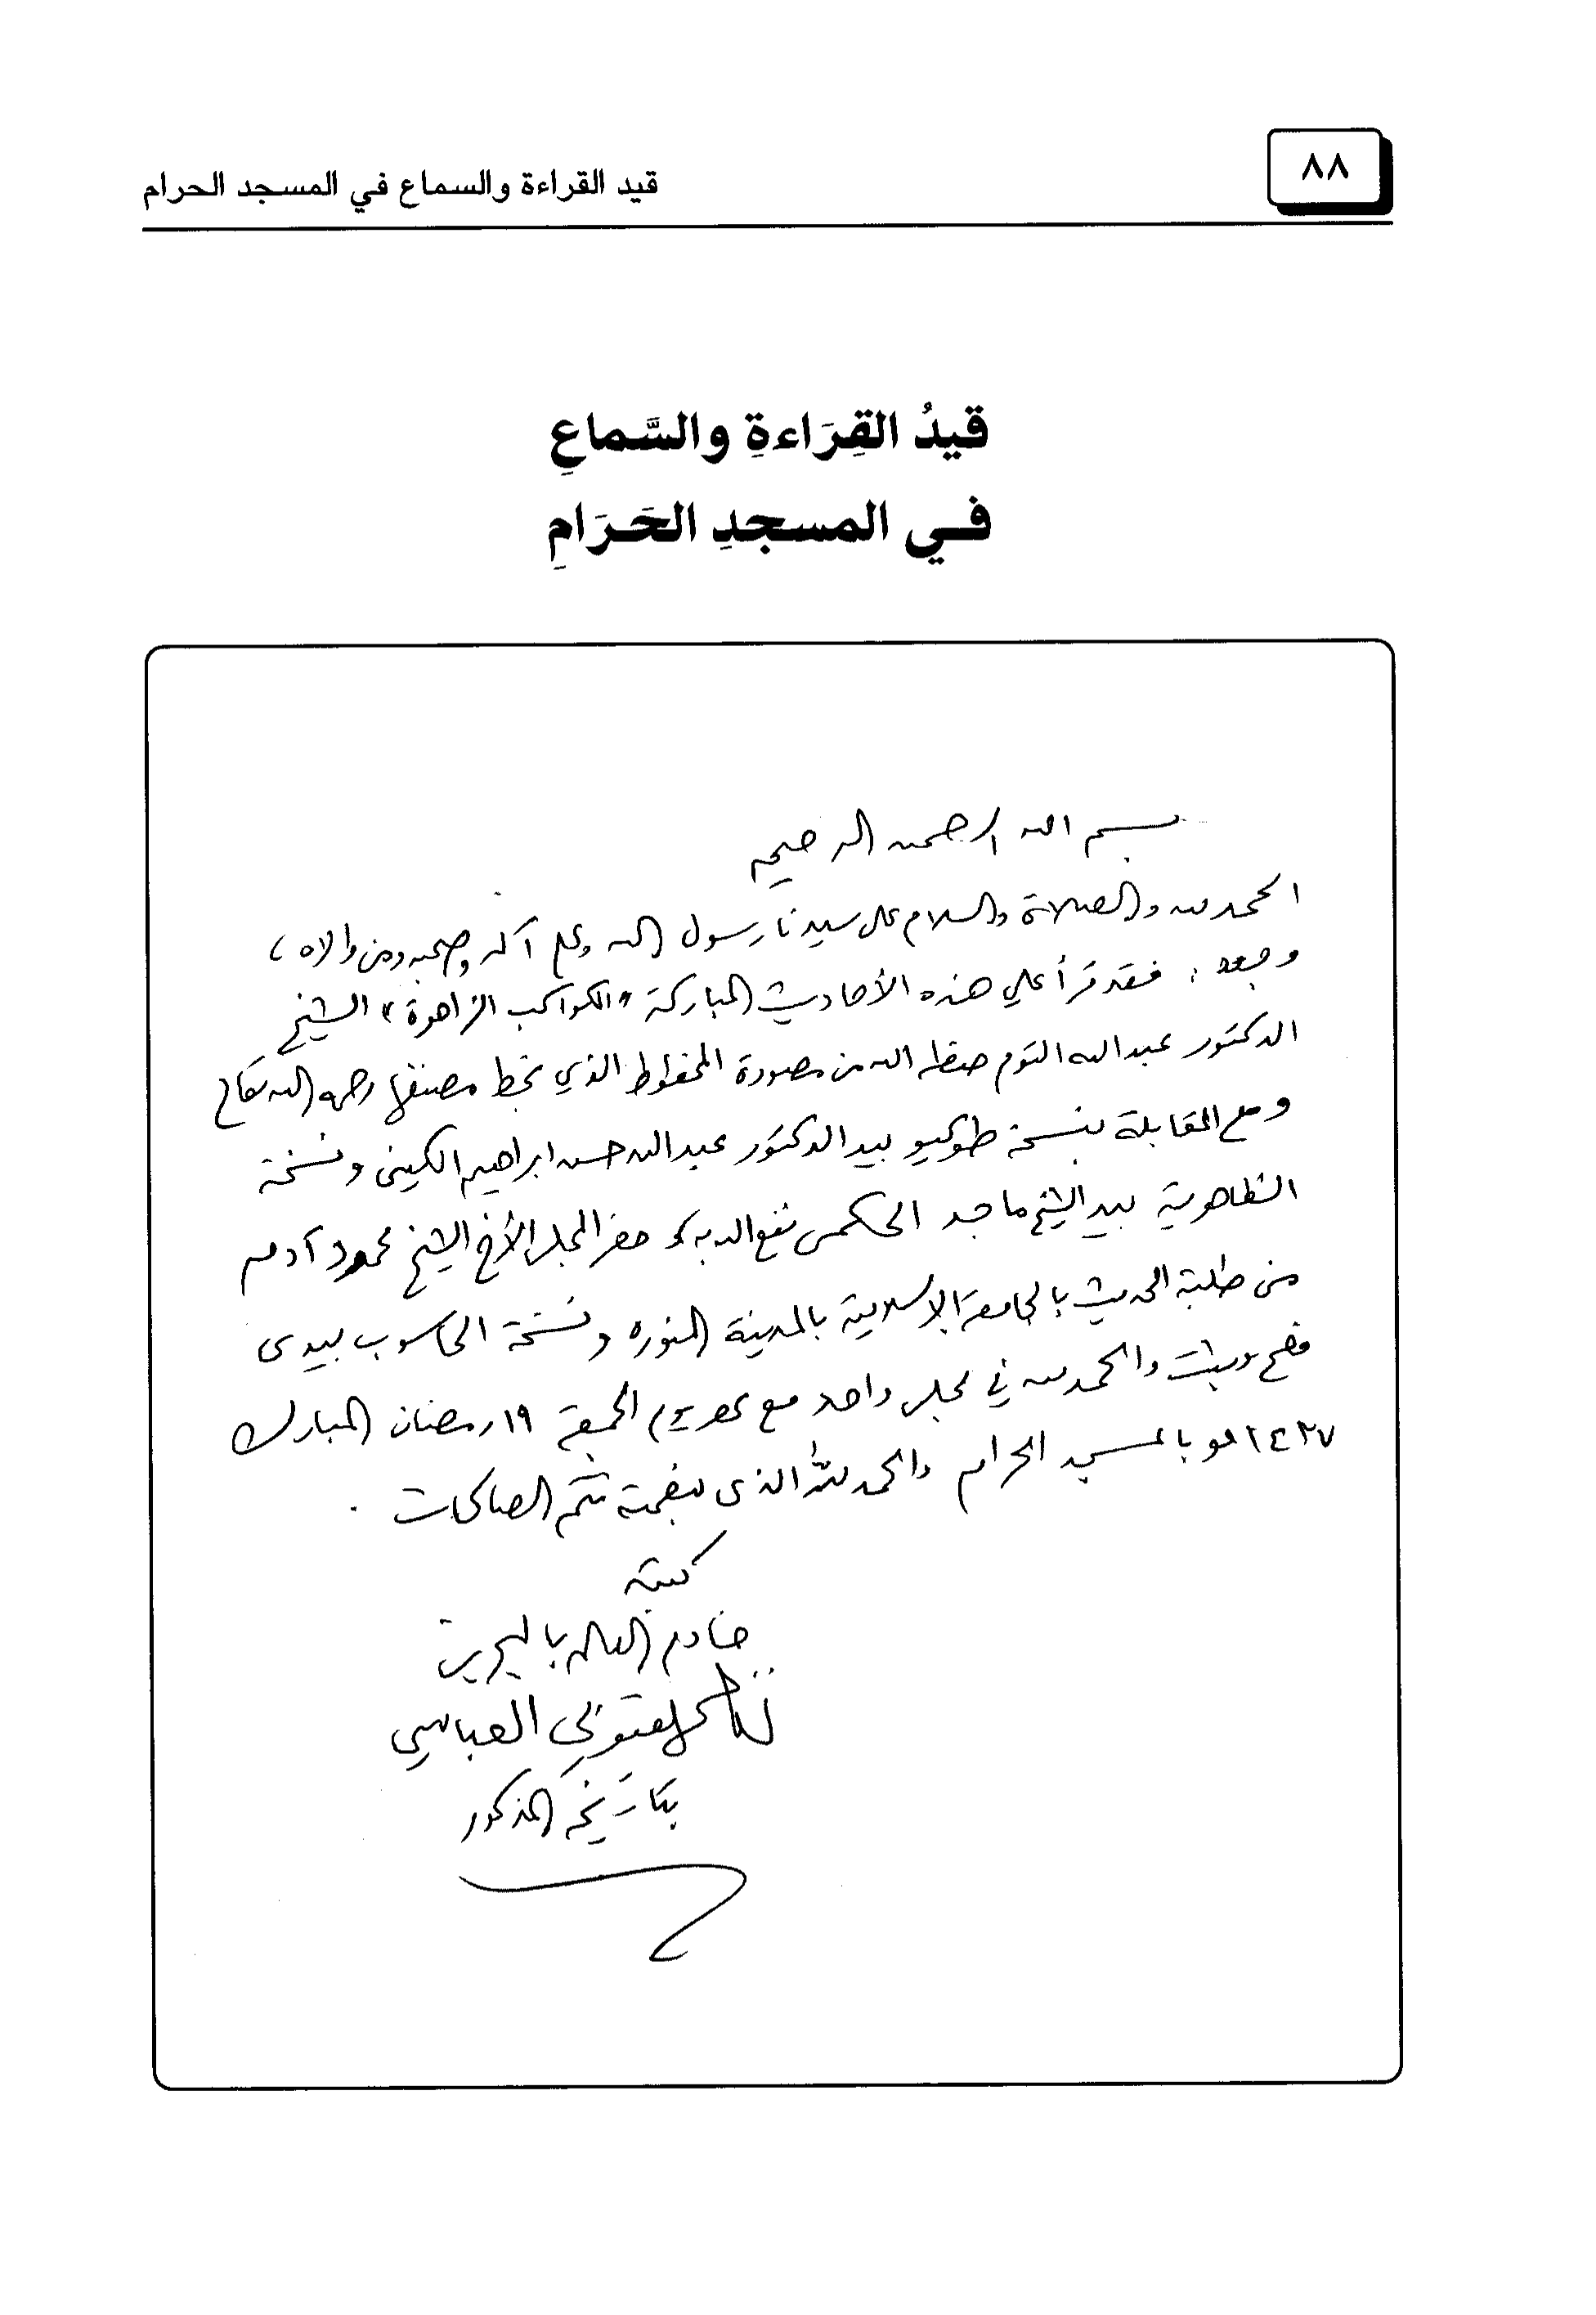 ٨٨
قيد القراءة والسماع في المسجد الحرام
قيدُ القِرَاءةِ والسَّماعِ
في المسجدِ الحَرَامِ
بسم الله الرحمن الرحيم
الحمد لله والصلاة والسلام على سيدنا رسول الله وعلى آله وصحبه ومن والاه ،
وبعد : فقد قرأ علي هذه الأحاديث المباركة «الكواكب الزاهرة» الشيخ
الدكتور عبد الله التوم حفظه الله من مصورة المخطوط الذي بخط مصنفها رحمه الله تعالى
ومع المقابلة بنسخة طوكيو بيد الدكتور عبد الله حسن ابراهيم الكيني ونسخة
الظاهرية بيد الشيخ ماجد الحكمي نفع الله به وحضر المجلس الأخ الشيخ محمود آدم
من طلبة الحديث بالجامعة الإسلامية بالمدينة المنوره ونسخة الحاسوب بيدي
فصح وثبت والحمد لله في مجلس واحد مع عصر يوم الجمعة ١٩ رمضان المبارك
١٤٢٧ هـ بالمسجد الحرام والحمد لله الذي بنعمته تتم الصالحات .
كتبه
خادم العلم بالبحرين
نظام يعقوبي العباسي
بتاريخه المذكور